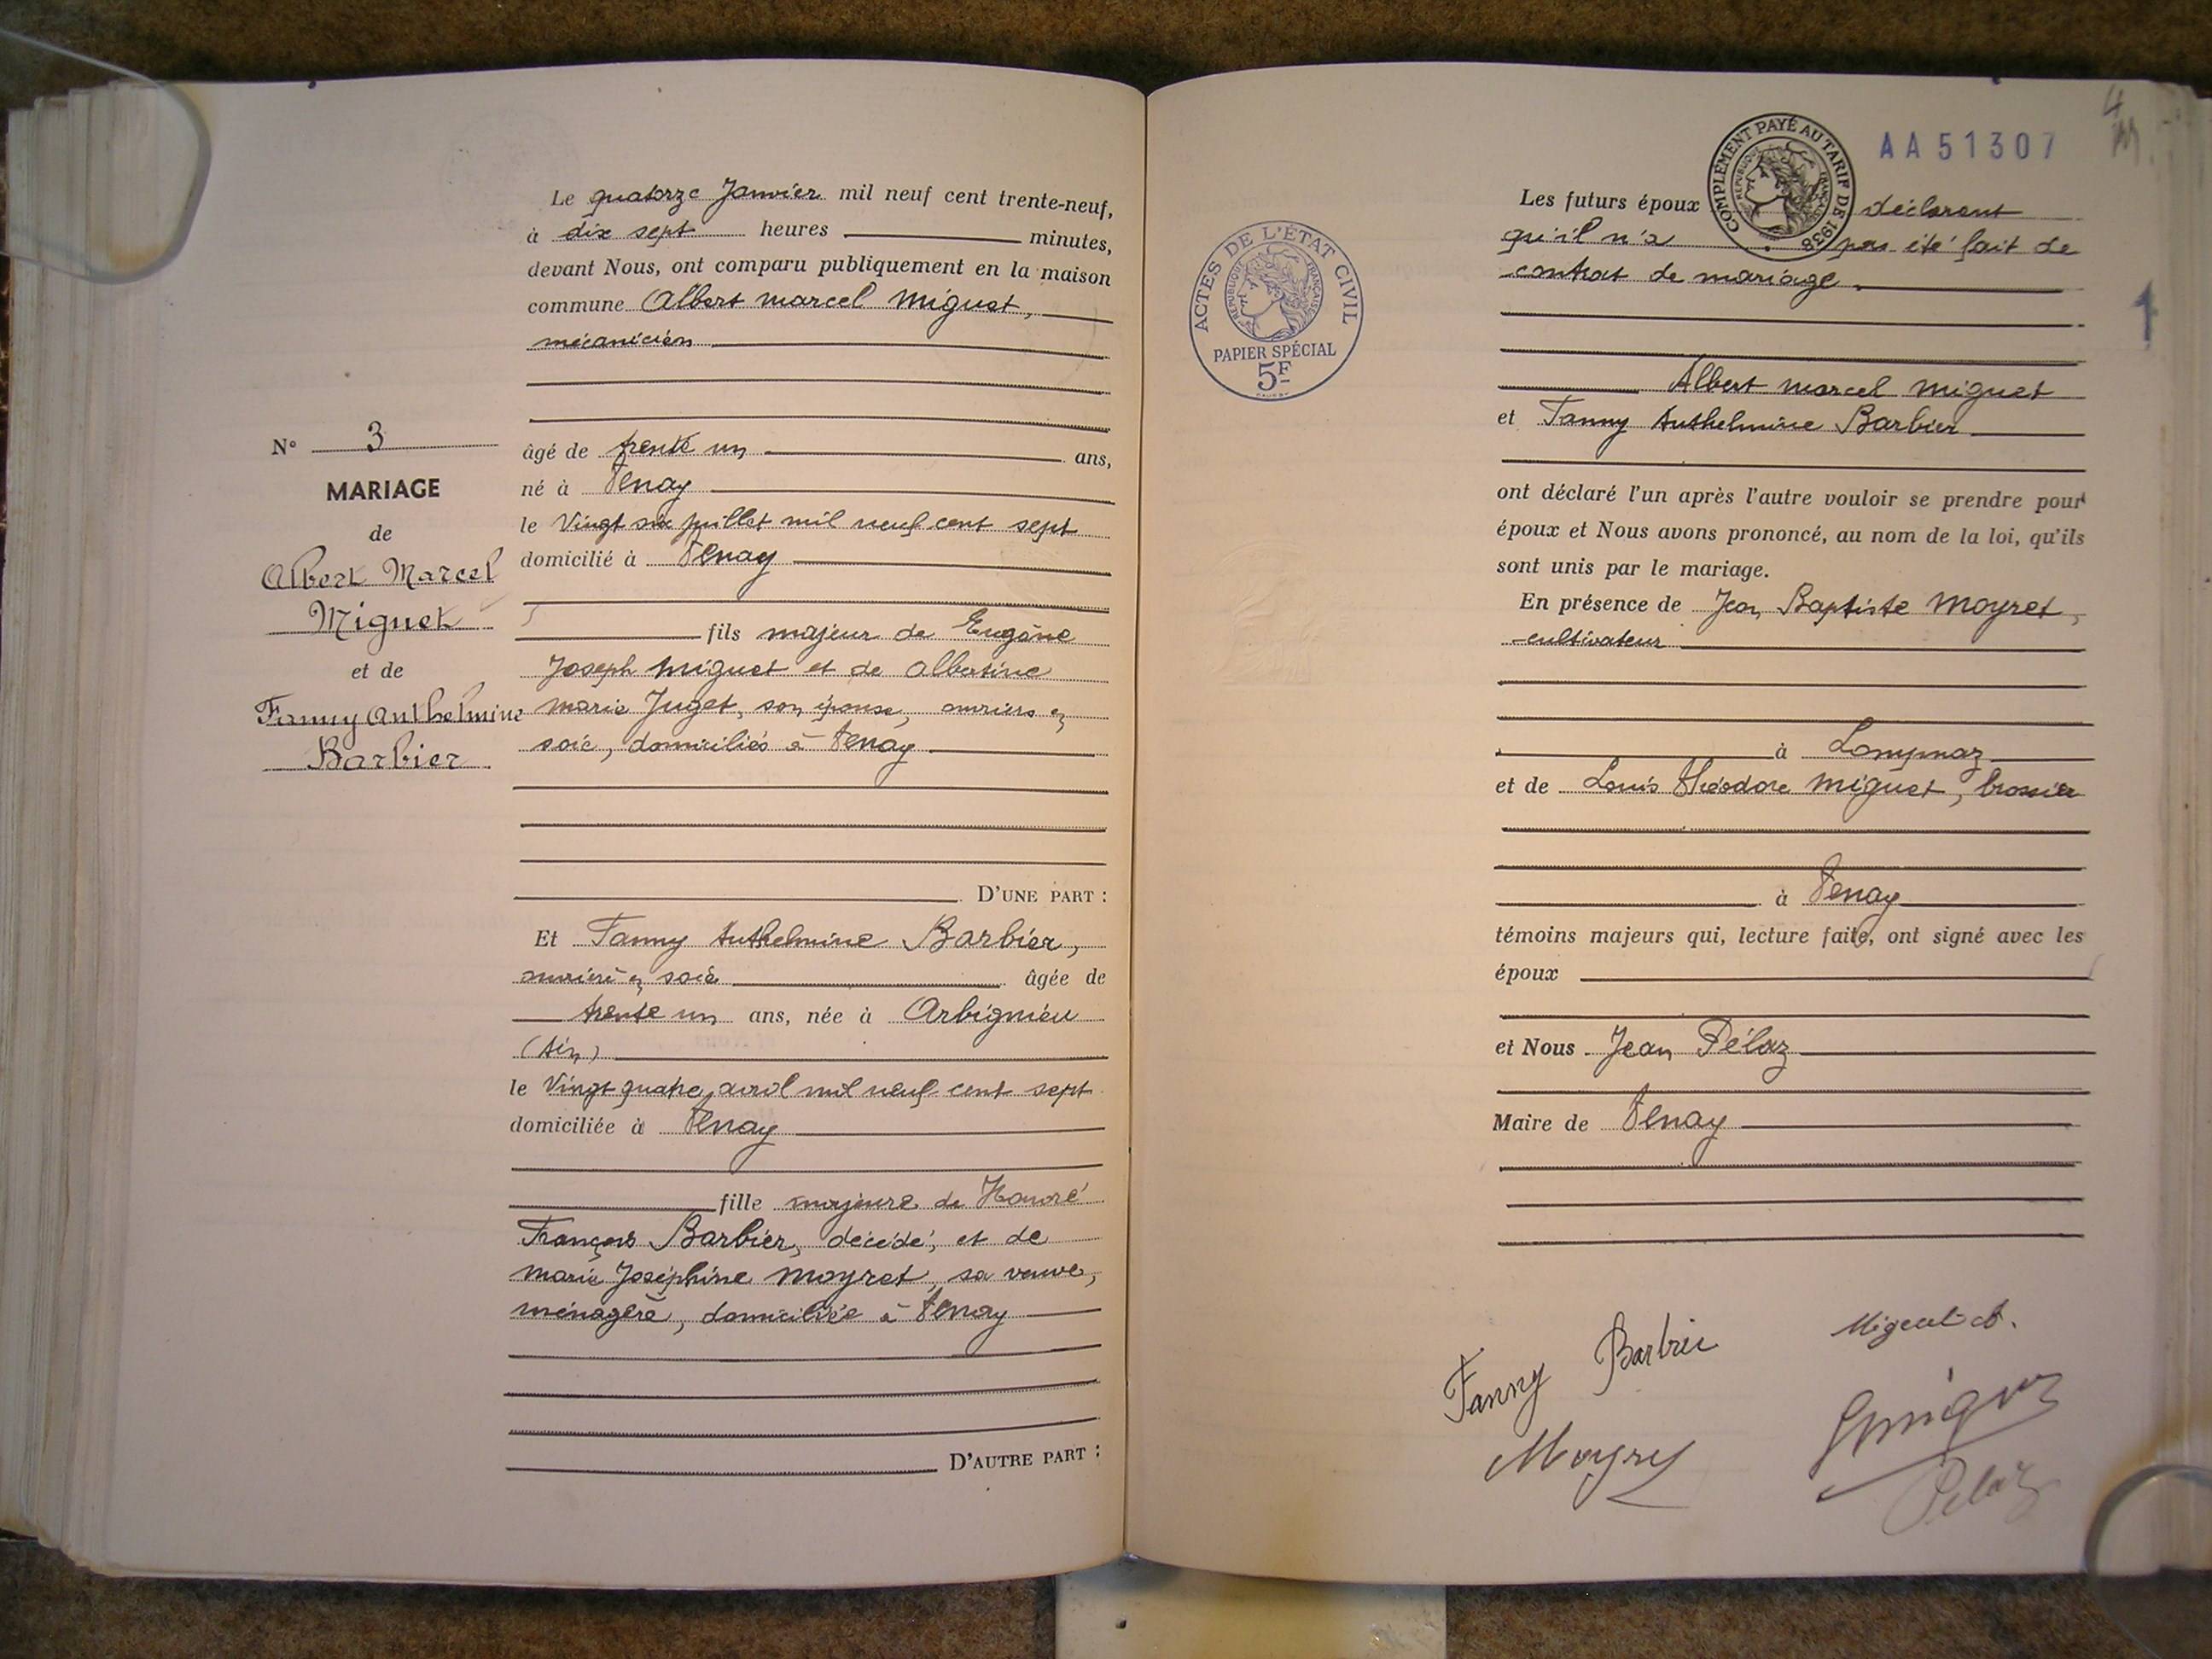 N° 3
MARIAGE
de
Albert Marcel
Miguet
et de
Fanny Anthelmine
Barbier
Le quatorze Janvier mil neuf cent trente-neuf,
à dix sept heures minutes,
devant Nous, ont comparu publiquement en la maison
commune Albert marcel Miguet,
mécanicien
âgé de trente un ans,
né à Tenay
le Vingt six juillet mil neuf cent sept
domicilié à Tenay
fils majeur de Eugène
Joseph Miguet et de Albertine
marie Juget, son épouse, ouvriers en
soie, domiciliés à Tenay
D'UNE PART :
Et Fanny Anthelmine Barbier,
ouvrière en soie âgée de
trente un ans, née à Arbignieu
(Ain)
le Vingt quatre avril mil neuf cent sept
domiciliée à Tenay
fille majeure de Honoré
François Barbier, décédé, et de
marie Joséphine Moyret, sa veuve,
ménagère, domiciliée à Tenay
D'AUTRE PART :
ACTES DE L'ÉTAT CIVIL
RÉPUBLIQUE FRANÇAISE
PAPIER SPÉCIAL
5F
COMPLÉMENT PAYÉ AU TARIF DE 1938
RÉPUBLIQUE FRANÇAISE
AA51307
4
1
Les futurs époux déclarent
qu'il n'a pas été fait de
contrat de mariage.
Albert marcel Miguet
et Fanny Anthelmine Barbier
ont déclaré l'un après l'autre vouloir se prendre pour
époux et Nous avons prononcé, au nom de la loi, qu'ils
sont unis par le mariage.
En présence de Jean Baptiste Moyret,
cultivateur
à Lompnaz
et de Louis Théodore Miguet, brossier
à Tenay
témoins majeurs qui, lecture faite, ont signé avec les
époux
et Nous Jean Pélaz
Maire de Tenay
Fanny Barbier
Miguet A.
Moyret
Pelaz